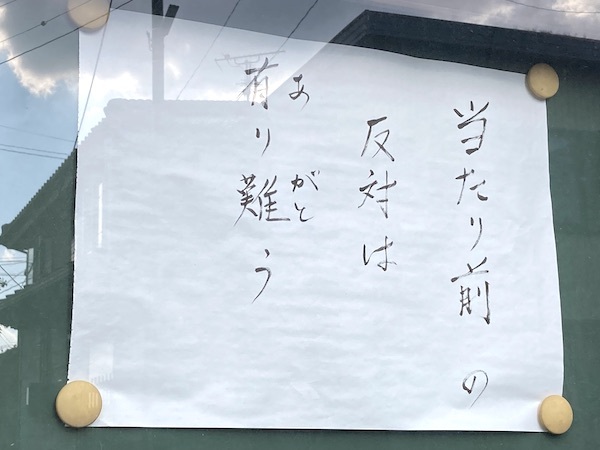 当たり前の
反対は
有り難う
あ がと